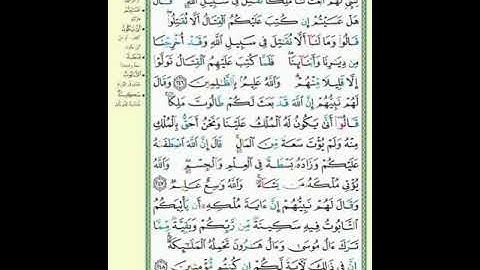 لِنَبِيٍّ لَّهُمُ ٱبْعَثْ لَنَا مَلِكًا نُّقَٰتِلْ فِي سَبِيلِ ٱللَّهِ قَالَ
هَلْ عَسَيْتُمْ إِن كُتِبَ عَلَيْكُمُ ٱلْقِتَالُ أَلَّا تُقَٰتِلُوا۟
قَالُوا۟ وَمَا لَنَآ أَلَّا نُقَٰتِلَ فِي سَبِيلِ ٱللَّهِ وَقَدْ أُخْرِجْنَا
مِن دِيَٰرِنَا وَأَبْنَآئِنَا فَلَمَّا كُتِبَ عَلَيْهِمُ ٱلْقِتَالُ تَوَلَّوْا۟
إِلَّا قَلِيلًا مِّنْهُمْ وَٱللَّهُ عَلِيمٌۢ بِٱلظَّٰلِمِينَ ٢٤٦ وَقَالَ
لَهُمْ نَبِيُّهُمْ إِنَّ ٱللَّهَ قَدْ بَعَثَ لَكُمْ طَالُوتَ مَلِكًا
قَالُوٓا۟ أَنَّىٰ يَكُونُ لَهُ ٱلْمُلْكُ عَلَيْنَا وَنَحْنُ أَحَقُّ بِٱلْمُلْكِ
مِنْهُ وَلَمْ يُؤْتَ سَعَةً مِّنَ ٱلْمَالِ قَالَ إِنَّ ٱللَّهَ ٱصْطَفَىٰهُ
عَلَيْكُمْ وَزَادَهُۥ بَسْطَةً فِي ٱلْعِلْمِ وَٱلْجِسْمِ وَٱللَّهُ
يُؤْتِي مُلْكَهُۥ مَن يَشَآءُ وَٱللَّهُ وَٰسِعٌ عَلِيمٌ ٢٤٧
وَقَالَ لَهُمْ نَبِيُّهُمْ إِنَّ ءَايَةَ مُلْكِهِۦٓ أَن يَأْتِيَكُمُ
ٱلتَّابُوتُ فِيهِ سَكِينَةٌ مِّن رَّبِّكُمْ وَبَقِيَّةٌ مِّمَّا
تَرَكَ ءَالُ مُوسَىٰ وَءَالُ هَٰرُونَ تَحْمِلُهُ ٱلْمَلَٰٓئِكَةُ
إِنَّ فِي ذَٰلِكَ لَءَايَةً لَّكُمْ إِن كُنتُم مُّؤْمِنِينَ ٢٤٨